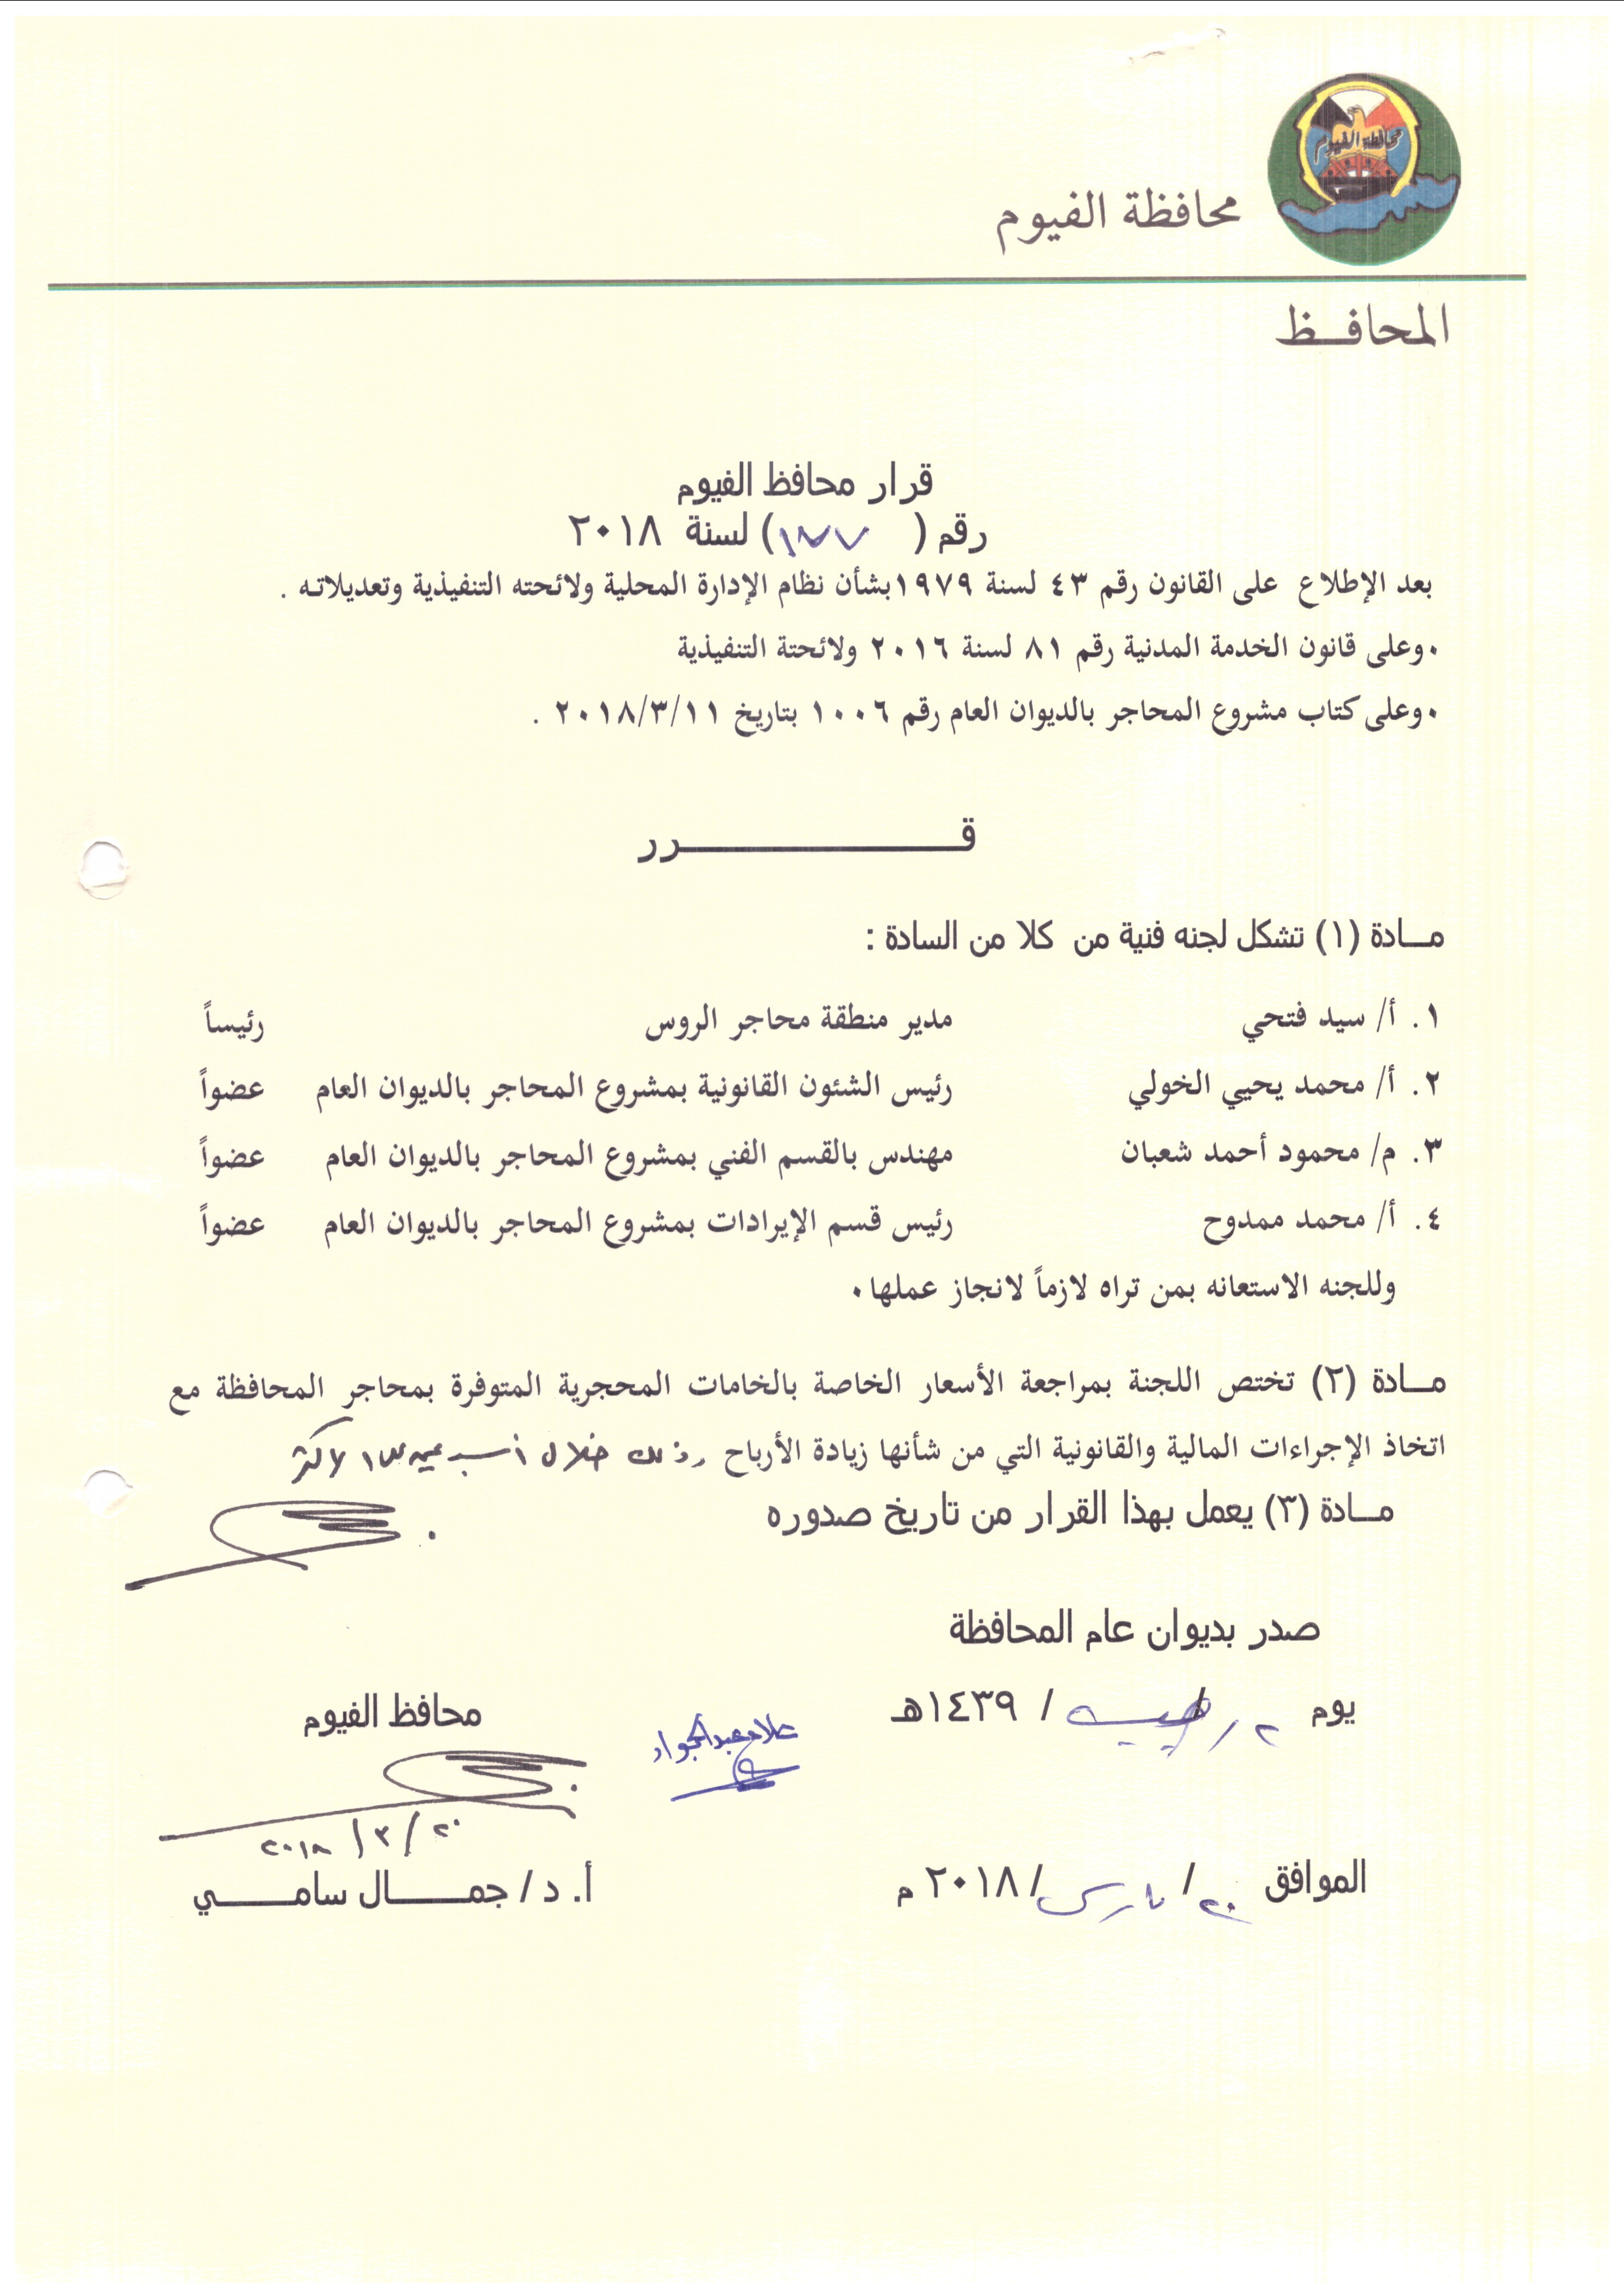 محافظة الفيوم
محافظة الفيوم
المحافــظ
قرار محافظ الفيوم
رقم ( ١٧٧ ) لسنة ٢٠١٨
بعد الإطلاع على القانون رقم ٤٣ لسنة ١٩٧٩بشأن نظام الإدارة المحلية ولائحته التنفيذية وتعديلاتـه .
٠وعلى قانون الخدمة المدنية رقم ٨١ لسنة ٢٠١٦ ولائحتة التنفيذية
٠وعلى كتاب مشروع المحاجر بالديوان العام رقم ١٠٠٦ بتاريخ ٢٠١٨/٣/١١ .
قــــــــــــــــرر
مــادة (١) تشكل لجنه فنية من كلا من السادة :
١. أ/ سيد فتحي مدير منطقة محاجر الروس رئيساً
٢. أ/ محمد يحيي الخولي رئيس الشئون القانونية بمشروع المحاجر بالديوان العام عضواً
٣. م/ محمود أحمد شعبان مهندس بالقسم الفني بمشروع المحاجر بالديوان العام عضواً
٤. أ/ محمد ممدوح رئيس قسم الإيرادات بمشروع المحاجر بالديوان العام عضواً
وللجنه الاستعانه بمن تراه لازماً لانجاز عملها٠
مــادة (٢) تختص اللجنة بمراجعة الأسعار الخاصة بالخامات المحجرية المتوفرة بمحاجر المحافظة مع
اتخاذ الإجراءات المالية والقانونية التي من شأنها زيادة الأرباح وذلك خلال أسبوعين على الأكثر
مــادة (٣) يعمل بهذا القرار من تاريخ صدوره
صدر بديوان عام المحافظة
يوم ٢ / رجب / ١٤٣٩هـ
محافظ الفيوم
عبدالجواد
٢٠ / ٣ / ٢٠١٨
الموافق ٢٠ / مارس / ٢٠١٨ م
أ. د / جمــــال سامــــي